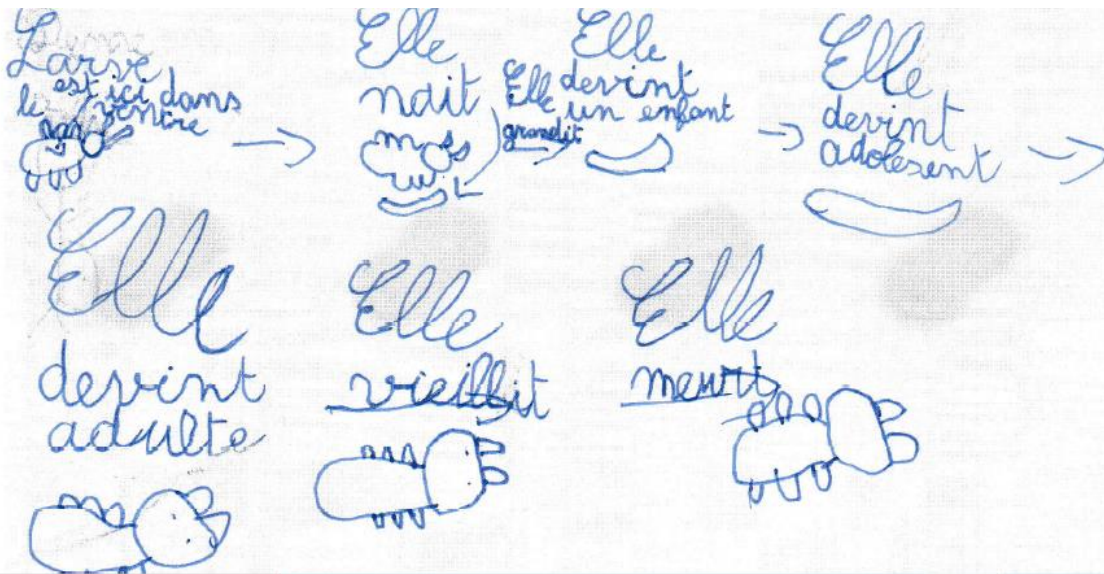 Larve
est ici dans
le ventre
Elle
nait
Elle
grandit
Elle
devint
un enfant
Elle
devint
adolesent
Elle
devint
adulte
Elle
vieillit
Elle
meurt